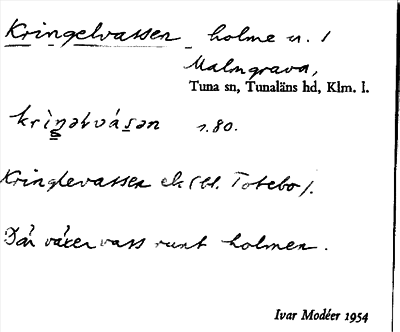 Kringelvassen holme u. 1
Malmgrava,
Tuna sn, Tunaläns hd, Klm. l.
krìŋəlvásən 1.80.
Kringlevassen ek (bl. Totebo).
Där växer vass runt holmen.
Ivar Modéer 1954